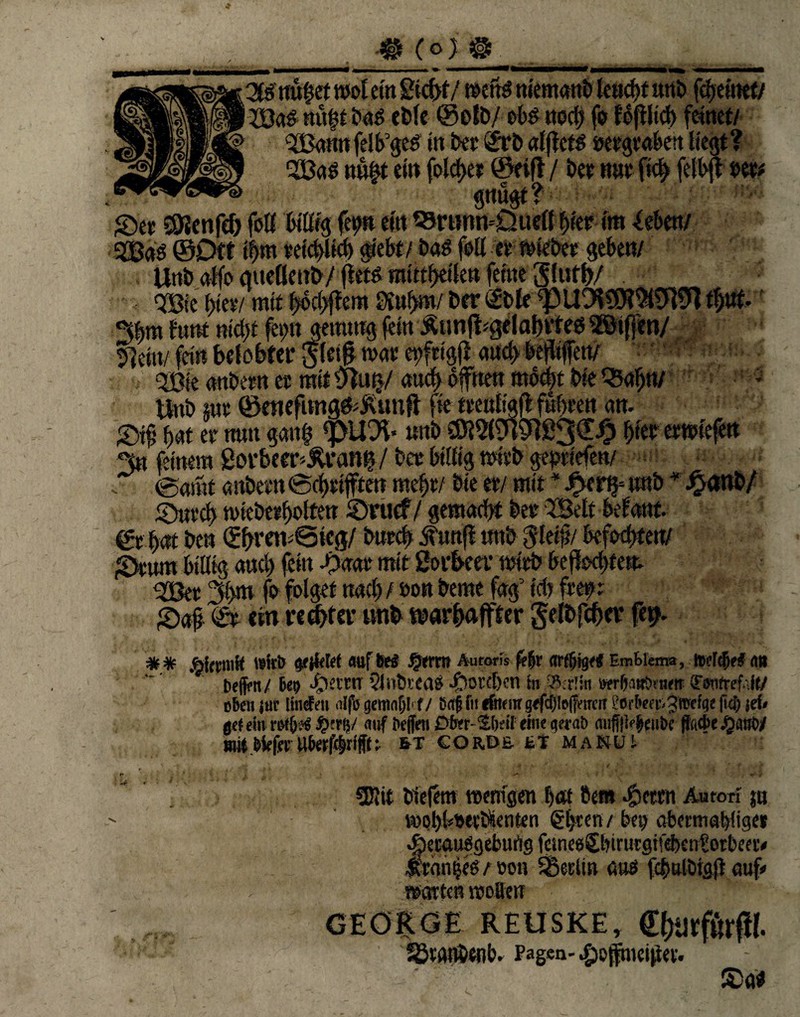 (o)
As nützet wol ein Licht/ wens niemand leucht und scheinet/
Was nützt das edle Gold/ obs noch so köstlich feinet/
Wann selb'ges in der Erd alstets vergraben liegt?
Was nützt ein solcher Geist / der nur sich selbst ver-
gnügt?
Der Mensch soll billig seyn ein Brunn-Quell hier im Leben/
Was GOtt ihm reichlich giebt/ das soll er wieder geben/
Und also quellend/ stets mittheilen seine Fluth/
Wie hier/ mit höchstem Ruhm/ der Edle PURMANN thut.
Ihm kunt nicht seyn genung sein Kunst-gelahrtes Wissen/
Nein/ sein belobter Fleiß war eyfrigst auch beflissen/
Wie andern er mit Nutz/ auch öffnen möcht die Bahn/
Und zur Genesungs-Kunst sie treuligst führen an.
Diß hat er nun gantz PUR- und MANNLJCH hier erwiesen
Jn seinem Lorbeer-Krantz/ der billig wird gepriesen/
Samt andern Schrifften mehr/ die er/ mit * Hertz- und * Hand/
Durch wiederholten Druck/ gemacht der Welt bekant.
Er hat den Ehren-Sieg/ durch Kunst und Fleiß/ befochten/
Drum billig auch sein Haar mit Lorbeer wird beflochten.
Wer Jhm so folget nach / von deme sag' ich frey:
Daß Er ein rechter und warhaffter Feldscher sey.
** Hiermit wird gezielet auf des Herrn Autoris sehr artiges Emblema, welches an
dessen/ bey Herrn Andreas Horchen in Berlin verhandenen Contrefait/
oben zur Lincken also gemahlt / daß in einem geschlossenen Lorbeer-Zweige sich zei-
get ein rothes Hertz/ auf dessen Ober-Theil eine gerad auffstehende flache Hand/
mit dieser Uberschrifft: ET CORDE ET MANU.
Mit diesem wenigen hat dem Herrn Autori zu
wohl-verdienten Ehren / bey abermahliger
Herausgebung seines Chirurgischen Lorbeer-
Krantzes / von Berlin aus schuldigst auf-
warten wollen
GEORGE REUSKE, Churfürstl.
Brandenb. Pagen-Hoffmeister.
Das